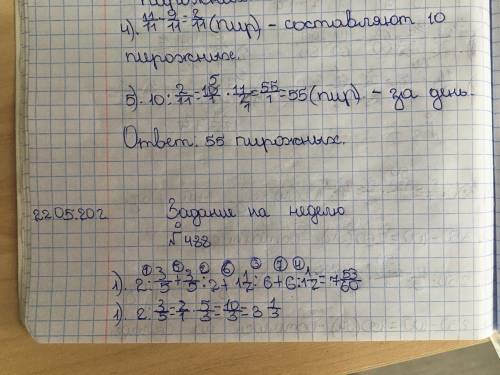 4). 11/11 - 9/11 = 2/11 (пир) - составляют 10
пирожных.
5). 10 : 2/11 = 10/1 · 11/2 = 55/1 = 55 (пир) - за день.
Ответ: 55 пирожных.
22.05.202
Задание на неделю
№ 488
1). 2 : 3/5 + 3/5 : 2 + 1 1/2 : 6 + 6 : 1 1/2 = 7 53/60
1). 2 : 3/5 = 2/1 · 5/3 = 10/3 = 3 1/3